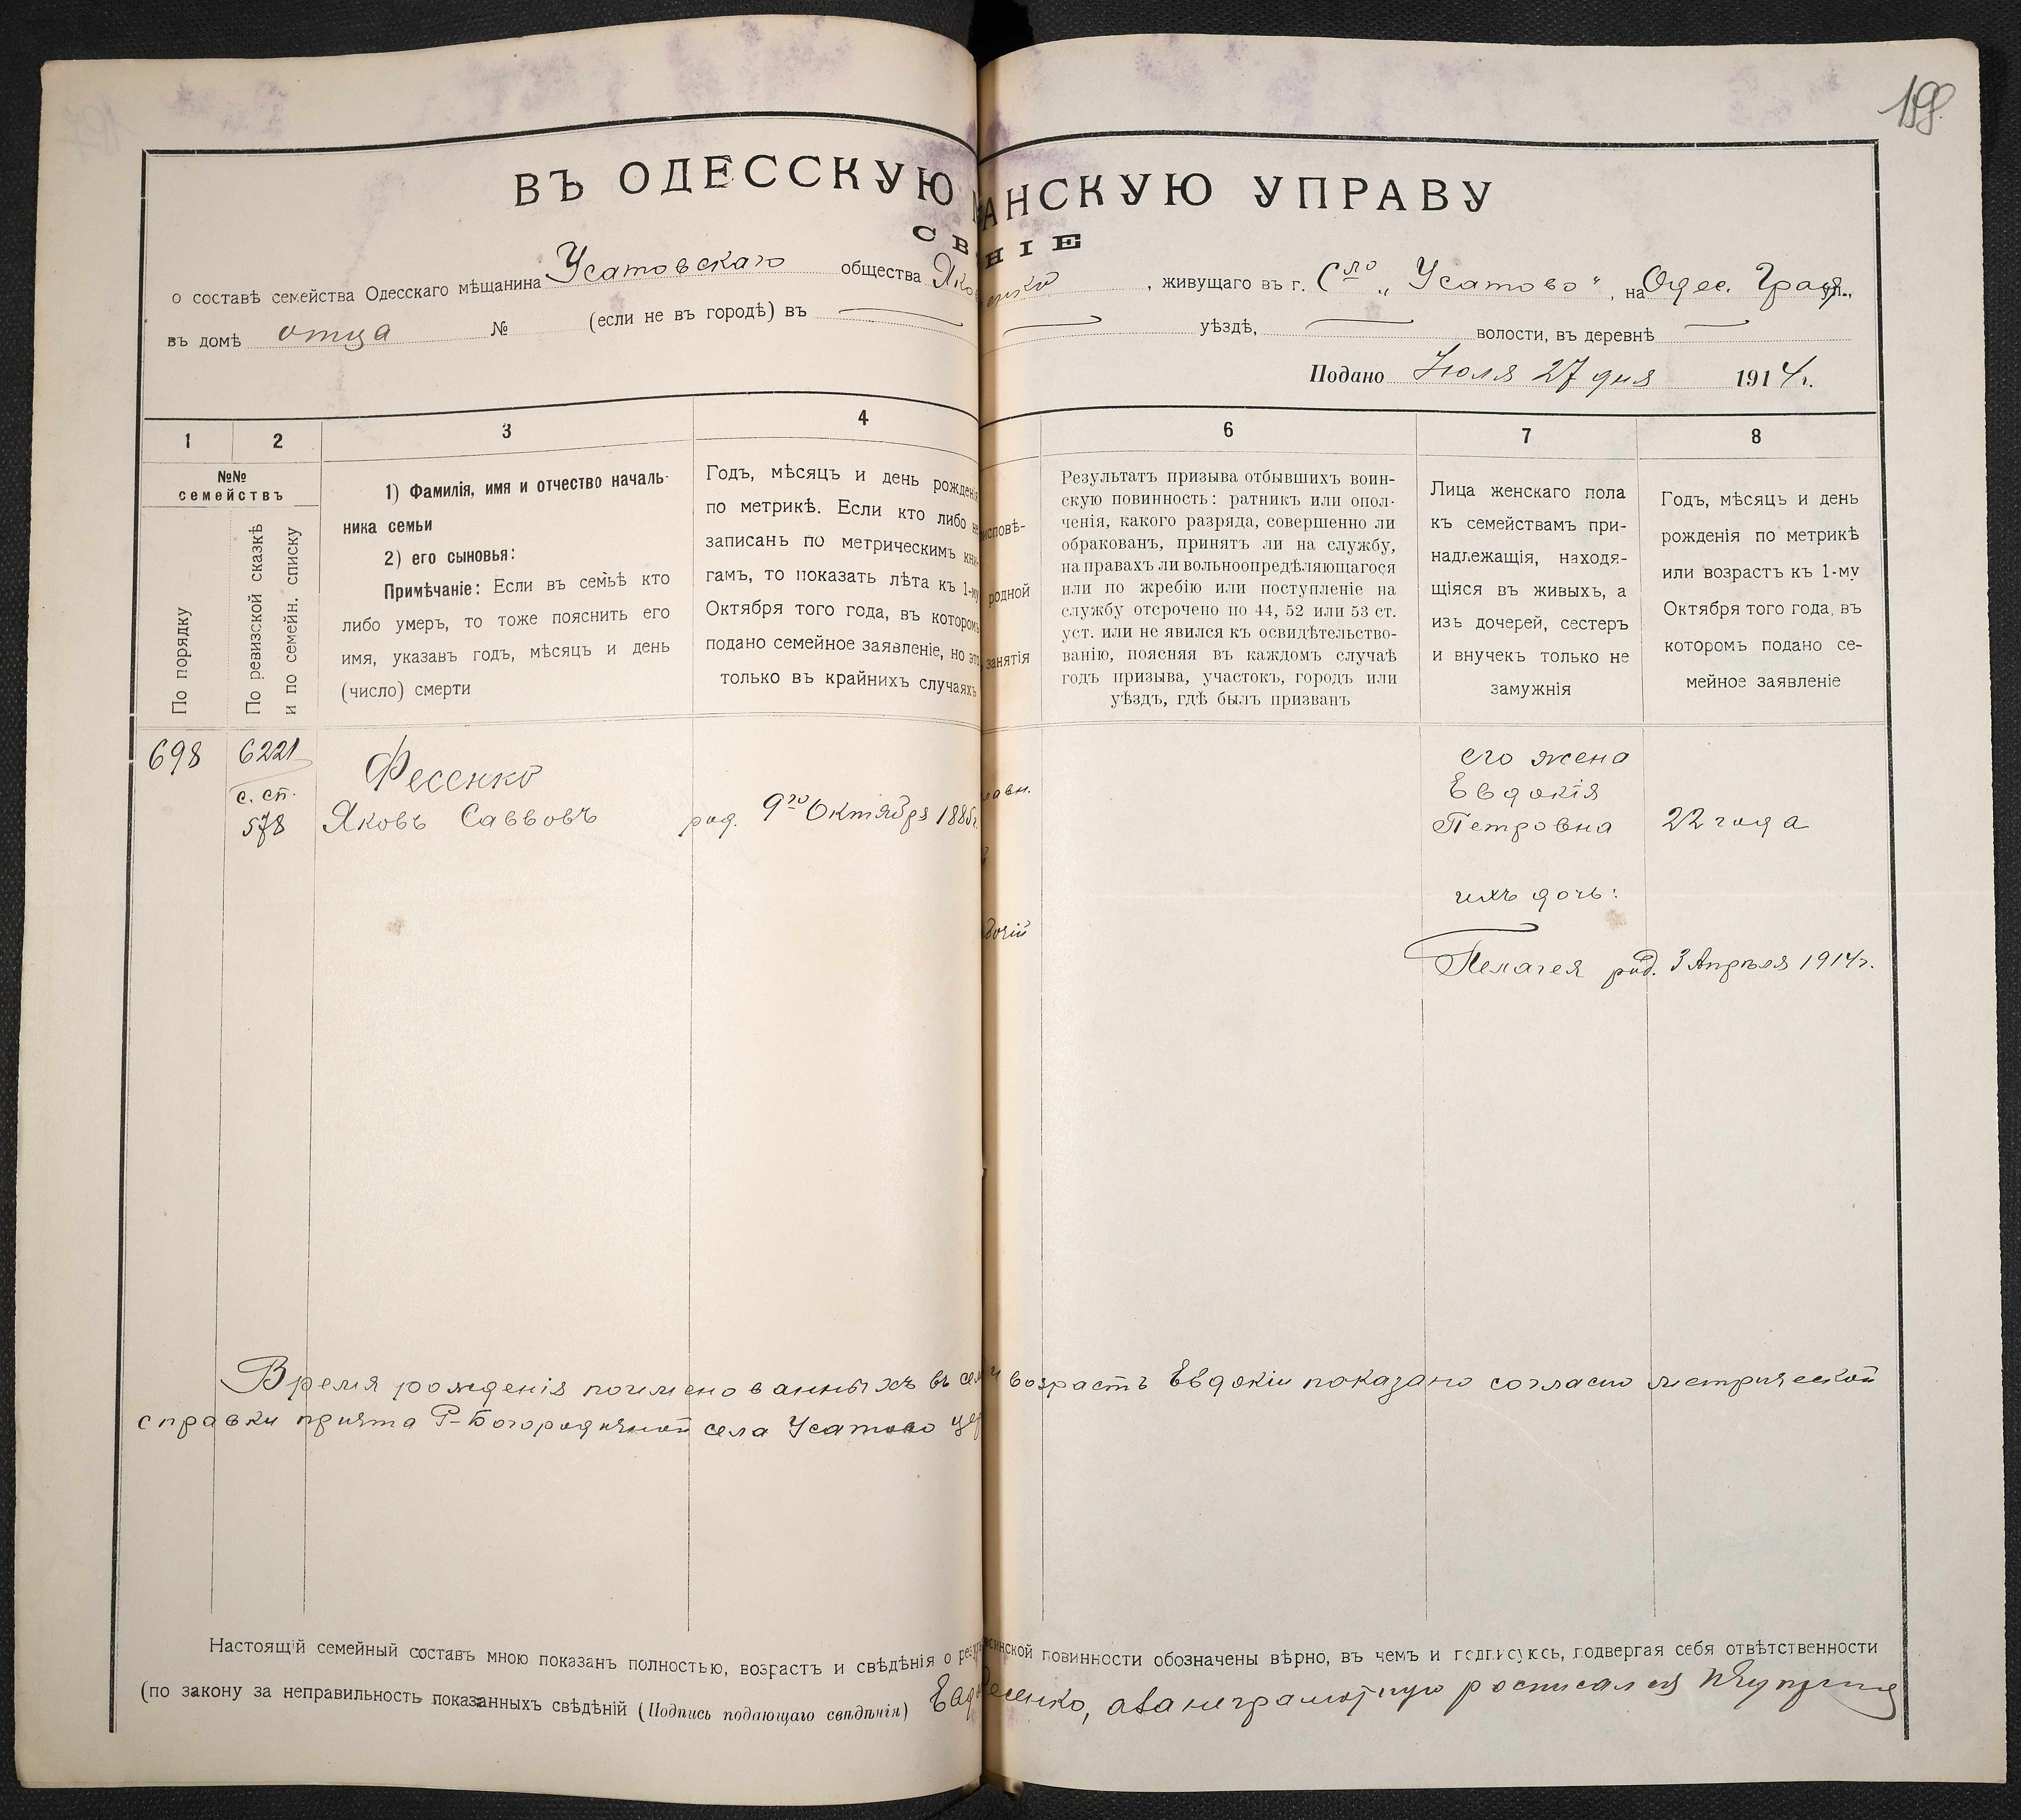 198
ВЪ ОДЕССКУЮ АНСКУЮ УПРАВУ
СВ НІЕ
о составѣ семейства Одесскаго мѣщанина Усатовскаго общества Яко енко , живущаго въ г. Сло „Усатово“, на Одес. Град ул.,
въ домѣ отца № (если не въ городѣ) въ уѣздѣ, волости, въ деревнѣ
Подано Июля 27 дня 1914 г.
1 2 3 4 6 7 8
№№
семействъ
По порядку
По ревизской сказкѣ
и по семейн. списку
1) Фамилія, имя и отчество началь-
ника семьи
2) его сыновья:
Примѣчаніе: Если въ семьѣ кто
либо умеръ, то тоже пояснить его
имя, указавъ годъ, мѣсяцъ и день
(число) смерти
Годъ, мѣсяцъ и день рожденія
по метрикѣ. Если кто либо не
записанъ по метрическимъ кни-
гамъ, то показать лѣта къ 1-му
Октября того года, въ которомъ
подано семейное заявленіе, но это
только въ крайнихъ случаяхъ
исповѣ-
родной
занятія
Результатъ призыва отбывшихъ воин-
скую повинность: ратникъ или опол-
ченія, какого разряда, совершенно ли
обракованъ, принятъ ли на службу,
на правахъ ли вольноопредѣляющагося
или по жребію или поступленіе на
службу отсрочено по 44, 52 или 53 ст.
уст. или не явился къ освидѣтельство-
ванію, поясняя въ каждомъ случаѣ
годъ призыва, участокъ, городъ или
уѣздъ, гдѣ былъ призванъ
Лица женскаго пола
къ семействамъ при-
надлежащія, находя-
щіяся въ живыхъ, а
изъ дочерей, сестеръ
и внучекъ только не
замужнія
Годъ, мѣсяцъ и день
рожденія по метрикѣ
или возрастъ къ 1-му
Октября того года, въ
которомъ подано се-
мейное заявленіе
698 6221 Фесенко его жена
с. сп. лавн. Евдокія
578 Яковъ Саввовъ род. 9го Октября 1885г. Петровна 22 года
ихъ дочь:
бочій
Пелагея род. 3 Апрѣля 1914г.
Время рожденія поименованныхъ въ сем и возрастъ Евдокіи показано согласно метрической
справки причта Р-Богородичной села Усатово цер
Настоящій семейный составъ мною показанъ полностью, возрастъ и свѣдѣнія о резул инской повинности обозначены вѣрно, въ чемъ и подписуюсь, подвергая себя отвѣтственности
(по закону за неправильность показанныхъ свѣдѣній (Подпись подающаго свѣдѣнія) Евд Фесенко, а за неграмотную росписался